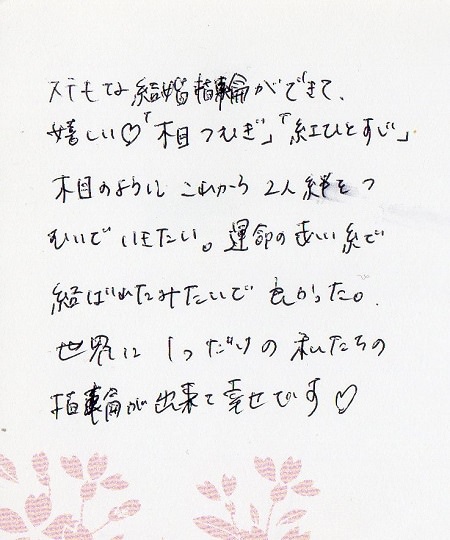 ステキな結婚指輪ができて、
嬉しい♡「木目つむぎ」「紅ひとすじ」
木目のように これから 2人絆をつ
むいで いきたい。運命の赤い糸で
結ばれたみたいで 良かった。
世界に 1つだけの 私たちの
指輪が出来て幸せです♡